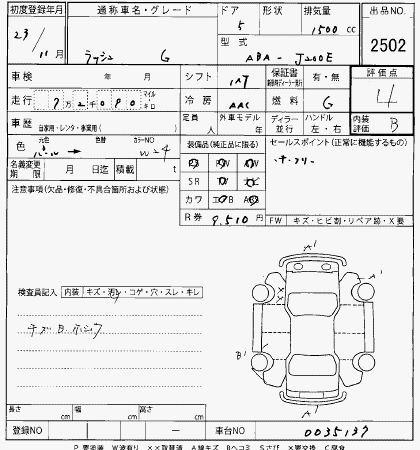 初度登録年月 通称車名・グレード ドア 形状 排気量 出品NO.
23/11月 ラッシュ G 5 1500 cc
型式 ABA - J200E 2502
車検 年 月 シフト IAT 保証書 有・無 評価点
走行 7万2千080 マイル キロ 冷房 AAC 燃料 G 4
車歴 自家用・レンタ・事業用( ) 定員 人 外車モデル 年 ディラー 並行 ハンドル 左・右 内装評価 B
色 元色 パール → 色替 カラーNO W24 装備品(純正品に限る) セールスポイント(正常に機能するもの)
名義変更期限 月 日迄 積載 t SR
注意事項(欠品・修復・不具合箇所および状態) カワ
R券 9,510 円 FW キズ・ヒビ割・リペア跡・X要
検査員記入 内装 キズ・汚レ・コゲ・穴・スレ・キレ
A'
A'
キズ B
B'
A'
長さ cm 幅 cm 高さ cm
登録NO ー 車台NO 0035137
P 要塗装 W波有り ××取替済 A線キズ Bヘコミ Sさび ×要交換 C腐食